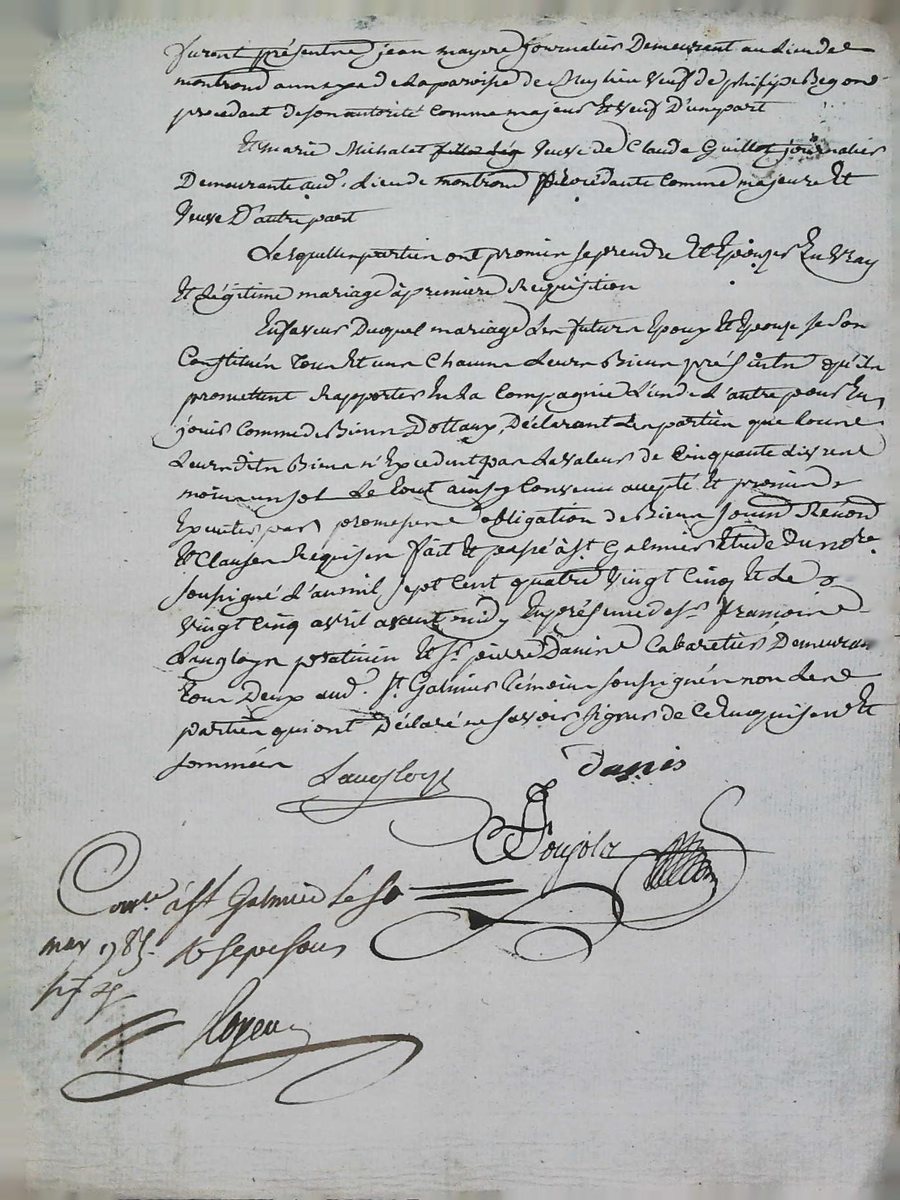 furent présents jean mayere journalier Demeurant au Lieu de
montrond annexe de La paroisse de Meylieu veuf de philipe Begon
procedant de son autorité comme majeur Et veuf D'une part
Et marie Michalet veuve de Claude Guillot journalier
Demeurante aud. Lieu de montrond procédante comme majeure Et
veuve D'autre part
Lesquelles parties ont promis se prendre Et Epouser En vray
Et Légitime mariage à première Requisition
En faveur Duquel mariage Les futurs Epoux Et Epouse se son
Constitués tous Et un Chacun Leurs Biens présents qu'ils
promettent Rapporter En La Compagnie L'un de L'autre pour En
jouir comme de Biens Dottaux, Déclarant Les parties que tous
Leursdits Biens n'Excedent pas La valeur de Cinquante Livres
moins un sol Le tout ainsy Convenu accepté Et promis
Executer par promesses obligation de Biens soumis Renond
Et Clauses Requises fait Et passé à St. Galmier Etude Du nore.
soussigné L'an mil sept cent quatre vingt cinq Et Le
vingt cinq avril avant midy En présence de sr. françois
Langloys praticien Et sr. pierre Danis Cabaretier Demeuran
tous Deux aud. St. Galmier témoins soussignés non Les
parties qui ont Déclaré ne savoir signer de ce Enquises Et
sommées
Langloys Danis
Poujola
Conlé à St Galmier Le
may 1785. R sept sous
Royer